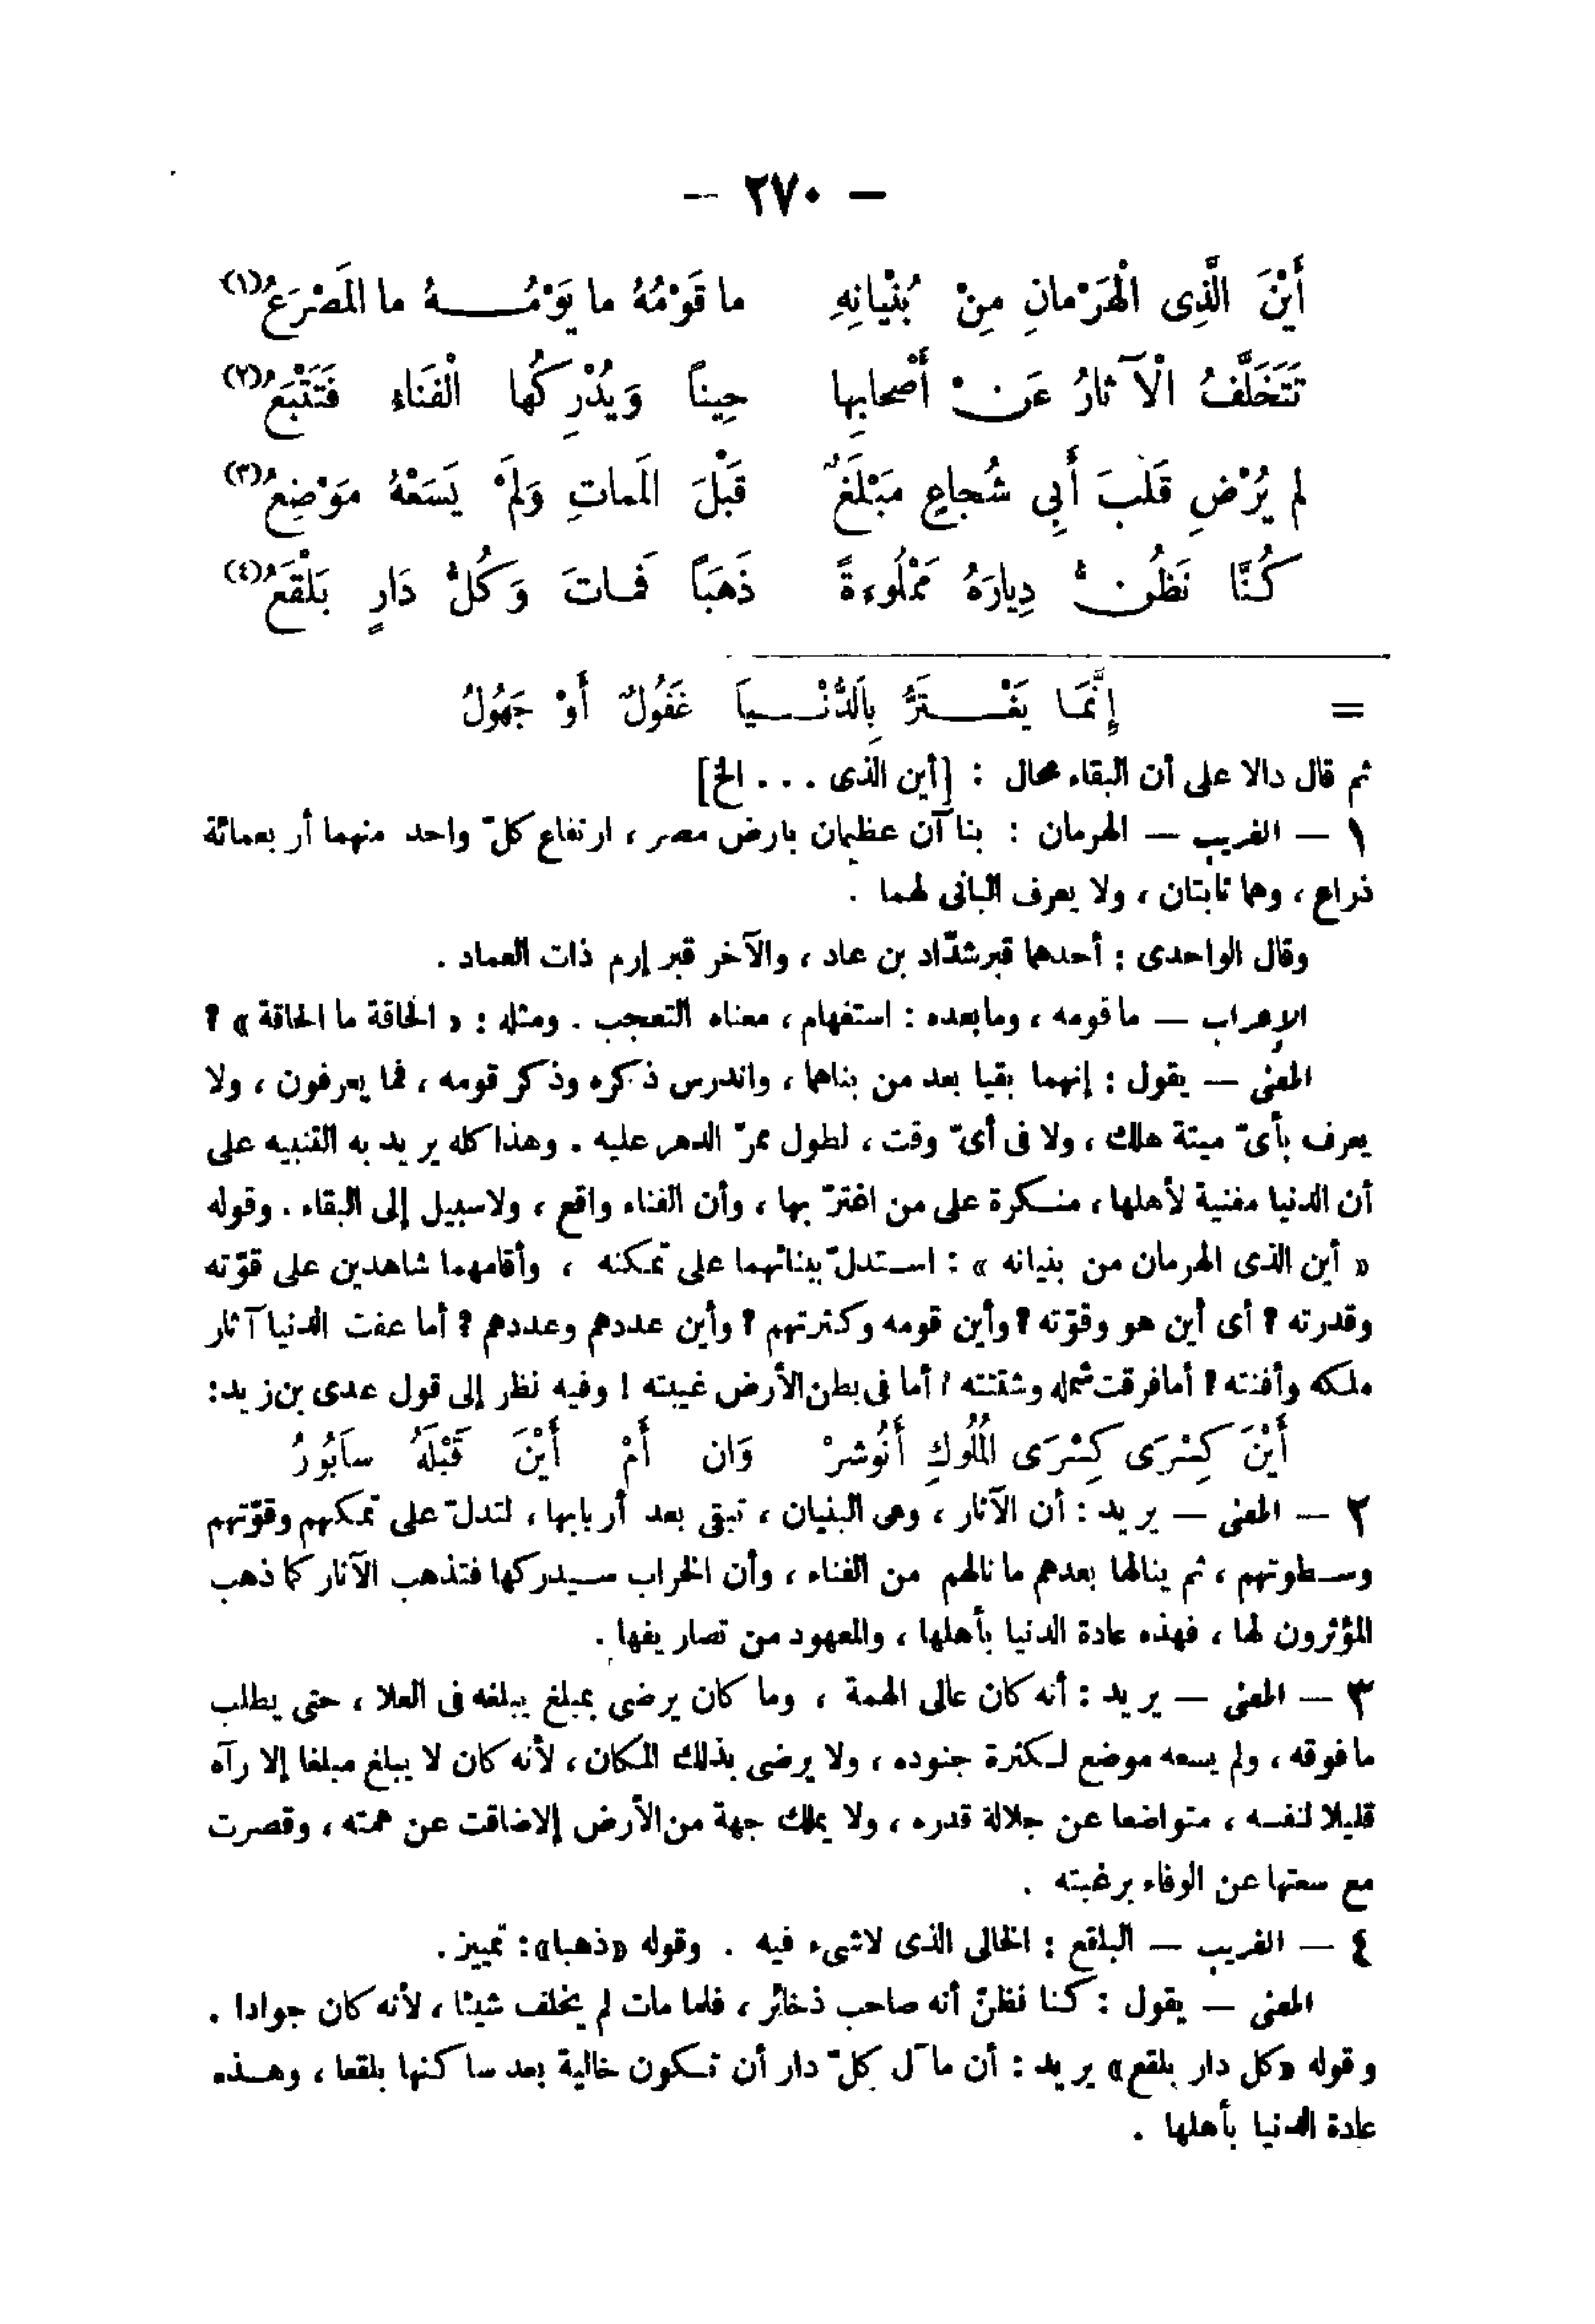 — ٢٧٠ —
أَيْنَ الَّذِى الْهَرْمانِ مِنْ بُنْيانِهِ ما قَوْمُهُ ما يَوْمُـــهُ ما المَصْرَعُ (١)
تَتَخَلَّفُ الْآثارُ عَنْ أَصْحابِها حِيناً وَيُدْرِكُها الْفَنَاءِ فَتَتْبَعُ (٢)
لم يُرْضِ قَلْبَ أَبِى شُجاعٍ مَبْلَغٌ قَبْلَ المَماتِ وَلَمْ يَسَعْهُ مَوْضِعُ (٣)
كُنَّا نَظُنُّ دِيارَهُ مَمْلُوءةً ذَهَباً فَماتَ وَكُلُّ دَارٍ بَلْقَعُ (٤)
= إِنَّمَا يَغْــتَرُّ بِالدُّنْــيَا غَفُولٌ أَوْ جَهُولُ
ثم قال دالا على أن البقاء محال : [أين الذى . . . الخ]
١ — الغريب — الهرمان : بنا آن عظيمان بارض مصر ، ارتفاع كلّ واحد منهما أربعمائة
ذراع ، وهما ثابتان ، ولا يعرف البانى لهما .
وقال الواحدى : أحدهما قبر شدّاد بن عاد ، والآخر قبر إرم ذات العماد .
الإعراب — ما قومه ، وما بعده : استفهام ، معناه التعجب . ومثله : « الحاقة ما الحاقة » ؟
المعنى — يقول : إنهما بقيا بعد من بناهما ، واندرس ذكره وذكر قومه ، فما يعرفون ، ولا
يعرف بأىّ ميتة هلك ، ولا فى أىّ وقت ، لطول ممرّ الدهر عليه . وهذا كله يريد به التنبيه على
أن الدنيا مفنية لأهلها ، منـكرة على من اغترّ بها ، وأن الفناء واقع ، ولا سبيل إلى البقاء . وقوله
« أين الذى الهرمان من بنيانه » : استدلّ ببنائهما على تمكنه ، وأقامهما شاهدين على قوّته
وقدرته ؟ أى أين هو وقوّته ؟ وأين قومه وكثرتهم ؟ وأين عددهم وعددهم ؟ أما عفت الدنيا آثار
ملكه وأفنته ؟ أما فرقت شمله وشتتته ؟ أما فى بطن الأرض غيبته ! وفيه نظر إلى قول عدى بن زيد:
أَيْنَ كِسْرَى كِسْرَى المُلُوكِ أَنُوشرْ وَان أَمْ أَيْنَ قَبْلَهُ سابُورُ
٢ — المعنى — يريد : أن الآثار ، وهى البنيان ، تبقى بعد أربابها ، لتدلّ على تمكنهم وقوّتهم
وسـطوتهم ، ثم ينالها بعدهم ما نالهم من الفناء ، وأن الخراب سـيدركها فتذهب الآثار كما ذهب
المؤثرون لها ، فهذه عادة الدنيا بأهلها ، والمعهود من تصاريفها .
٣ — المعنى — يريد : أنه كان عالى الهمة ، وما كان يرضى بمبلغ يبلغه فى العلا ، حتى يطلب
ما فوقه ، ولم يسعه موضع لـكثرة جنوده ، ولا يرضى بذلك المكان ، لأنه كان لا يبلغ مبلغا إلا رآه
قليلا لنفسه ، متواضعا عن جلالة قدره ، ولا يملك جهة من الأرض إلا ضاقت عن همته ، وقصرت
مع سعتها عن الوفاء برغبته .
٤ — الغريب — البلقع : الخالى الذى لا شىء فيه . وقوله «ذهبا»: تمييز .
المعنى — يقول : كنا نظنّ أنه صاحب ذخائر ، فلما مات لم يخلف شيئا ، لأنه كان جوادا .
وقوله «كل دار بلقع» يريد : أن مآل كلّ دار أن تـكون خالية بعد ساكنها بلقعا ، وهـذه
عادة الدنيا بأهلها .